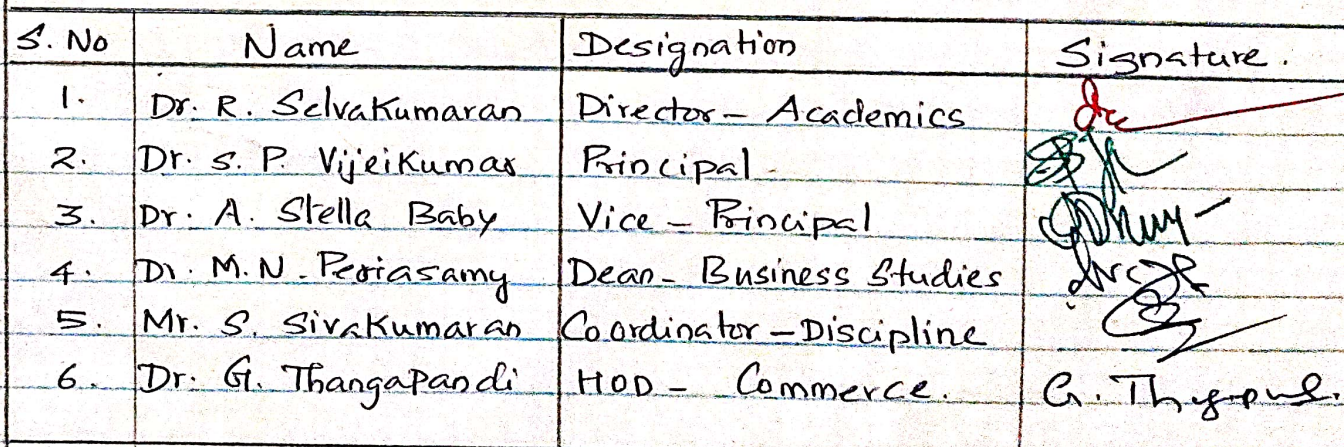 S. No Name Designation Signature.
1. Dr. R. Selvakumaran Director - Academics
2. Dr. S. P. Vijeikumar Principal -
3. Dr. A. Stella Baby Vice - Principal
4. Dr. M.N. Periasamy Dean - Business Studies
5. Mr. S. Sivakumaran Coordinator - Discipline
6. Dr. G. Thangapandi HOD - Commerce. G.